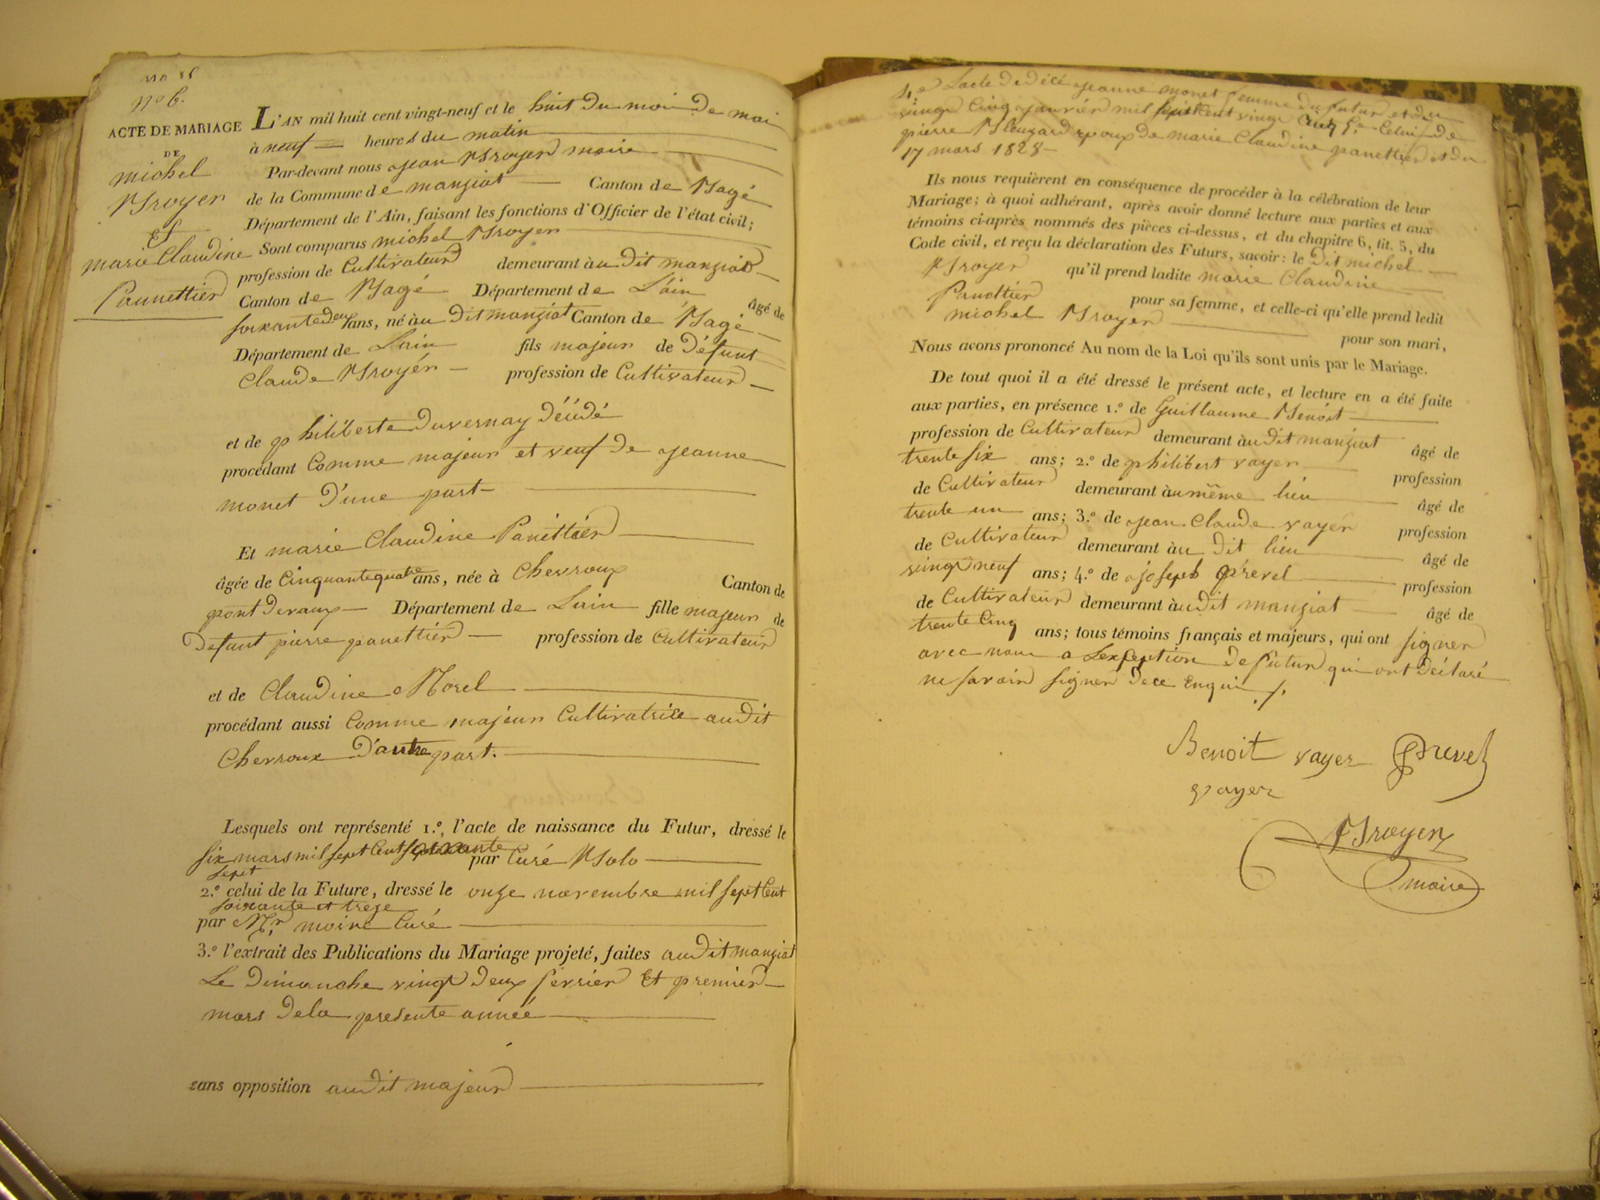 no 6.
ACTE DE MARIAGE
DE
michel
Broyer
Et
marie Claudine
Panettier
L'AN mil huit cent vingt-neuf et le huit du mois de mai
à neuf heures du matin
Par-devant nous jean Broyer maire
de la Commune de manziat Canton de Bagé
Département de l'Ain, faisant les fonctions d'Officier de l'état civil;
Sont comparus michel Broyer
profession de Cultivateur demeurant àu dit manziat
Canton de Bagé Département de L'ain âgé de
soixante deux ans, né àu dit manziat Canton de Bagé
Département de Lain fils majeur de défunt
Claude Broyer profession de Cultivateur
et de philiberte duvernay décédé
procédant Comme majeur et veuf de jeanne
monet d'une part
Et marie Claudine Panettier
âgée de Cinquante quatre ans, née à Chevroux Canton de
pont de vaux Département de Lain fille majeur de
defunt pierre panettier profession de Cultivateur
et de Claudine Morel
procédant aussi Comme majeur Cultivatrice audit
Chevroux D'autre part.
Lesquels ont représenté 1.º, l'acte de naissance du Futur, dressé le
six mars mil sept Cent soixante
sept par Curé Bolo
2.º celui de la Future, dressé le onze novembre mil sept Cent
soixante et treze
par Mr. moine Curé
3.º l'extrait des Publications du Mariage projeté, faites audit manziat
Le Dimanche vingt deux février Et premier
mars dela presente année
sans opposition audit majeur
4º Lacte de décé jeanne monet femme du futur et du
vingt Cinq janvier mil huit Cent vingt 5º Celui de
pierre époux de marie Claudine panettier et du
17 mars 1828
Ils nous requièrent en conséquence de procéder à la célébration de leur
Mariage; à quoi adhérant, après avoir donné lecture aux parties et aux
témoins ci-après nommés des pièces ci-dessus, et du chapitre 6, tit. 5, du
Code civil, et reçu la déclaration des Futurs, savoir: le dit michel
Broyer qu'il prend ladite marie Claudine
Panettier pour sa femme, et celle-ci qu'elle prend ledit
michel Broyer pour son mari,
Nous avons prononcé Au nom de la Loi qu'ils sont unis par le Mariage.
De tout quoi il a été dressé le présent acte, et lecture en a été faite
aux parties, en présence 1.º de Guillaume Benoit
profession de Cultivateur demeurant àu dit manziat âgé de
trente six ans; 2.º de philibert vayer profession
de Cultivateur demeurant àu même lieu âgé de
trente un ans; 3.º de jean Claude vayer profession
de Cultivateur demeurant àu dit lieu âgé de
vingt neuf ans; 4.º de joseph prevel profession
de Cultivateur demeurant àudit manziat âgé de
trente Cinq ans; tous témoins français et majeurs, qui ont signer
avec nous a Lexseption de futur qui ont déclaré
ne savoir signer dece Enqui
Benoit vayer Prevel
vayer
Broyer
maire